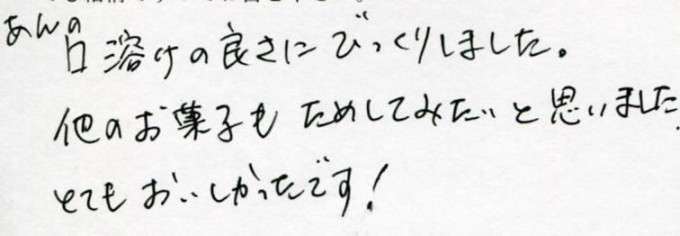 あんの口溶けの良さにびっくりしました。
他のお菓子もためしてみたいと思いました
とてもおいしかったです!